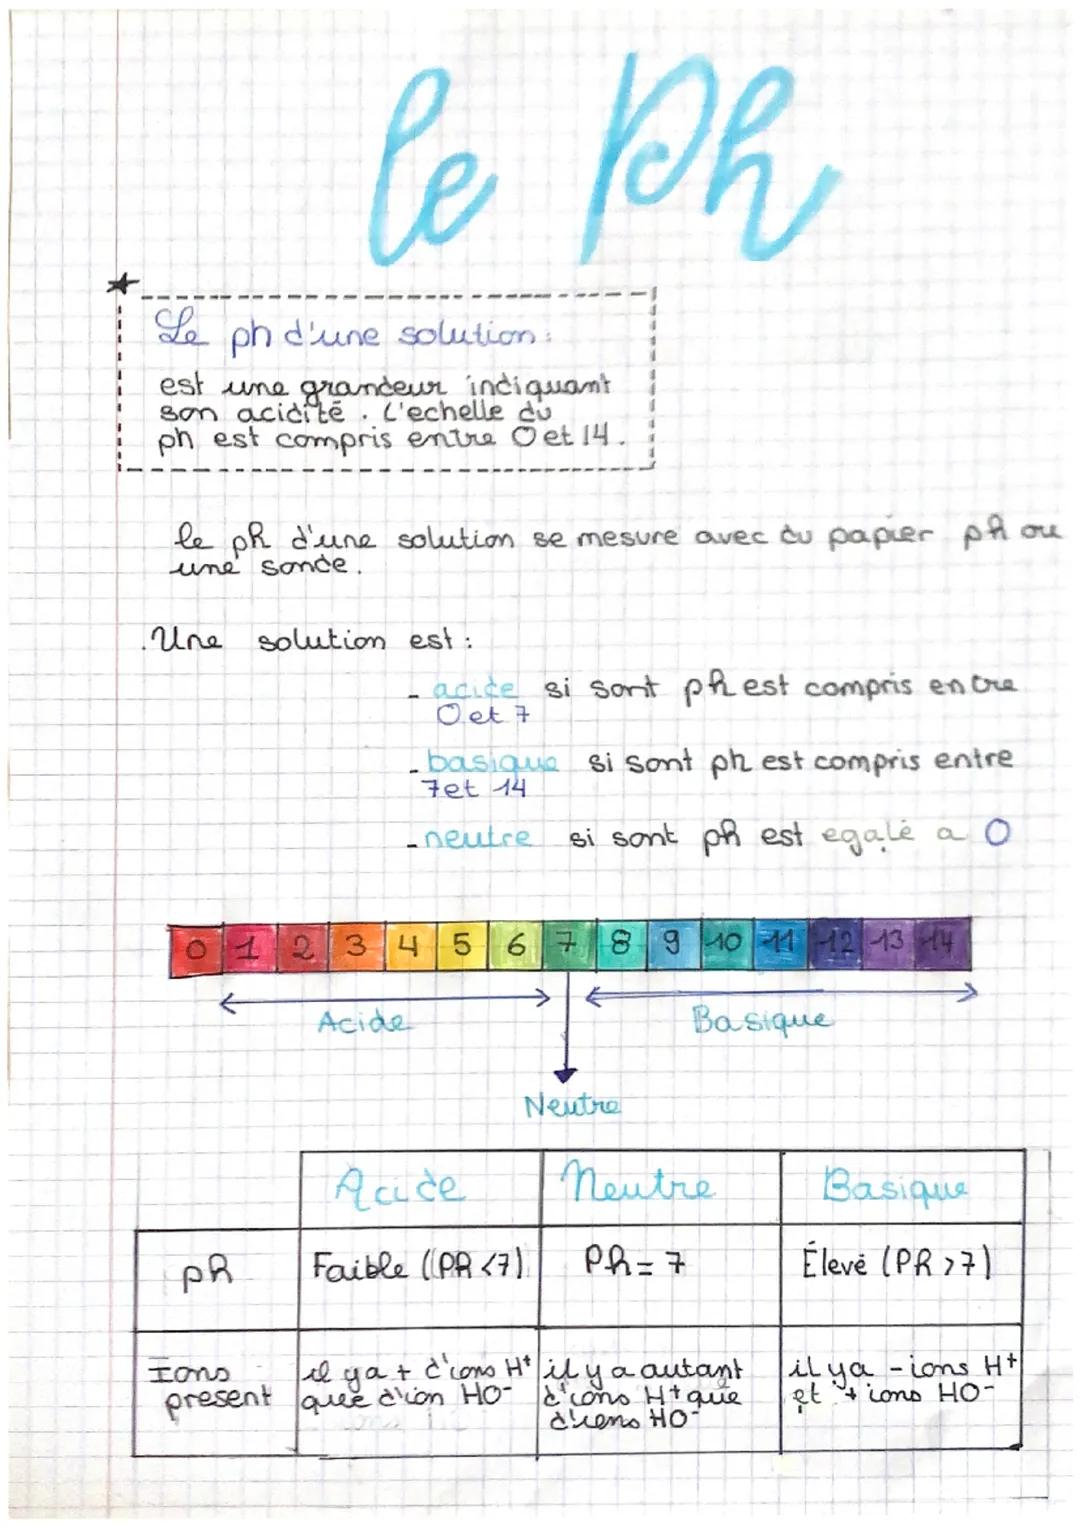 le Ph
Le ph d'une solution :
est une grandeur indiquant
son acidité. L'echelle du
ph est compris entre 0 et 14.
le ph d'une solution se mesure avec du papier ph ou
une sonde.
.Une solution est :
- acide si sont ph est compris entre
0 et 7
- basique si sont ph est compris entre
7 et 14
- neutre si sont ph est egalé a 0
0 1 2 3 4 5 6 7 8 9 10 11 12 13 14
Acide Basique
Neutre
Acide Neutre Basique
ph Faible ((Ph <7) Ph = 7 Élevé (Ph >7)
Ions il y a + d'ions H+ il y a autant il y a - ions H+
present queé d'ion HO- d'ions H+ que et + ions HO-
d'iens HO-